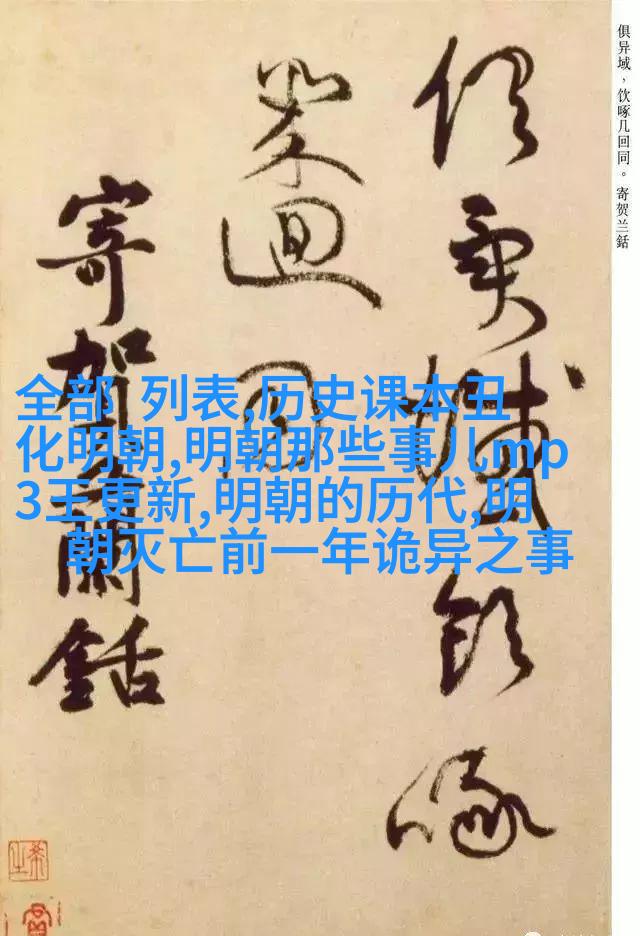 俱异域，饮啄几回同。寄贺兰銛
俱異域飲啄
幾迴同
寄賀蘭銛
全部 列表,历史课本丑
化明朝,明朝那些事儿mp
3王更新,明朝的历代,明
朝灭亡前一年诡异之事